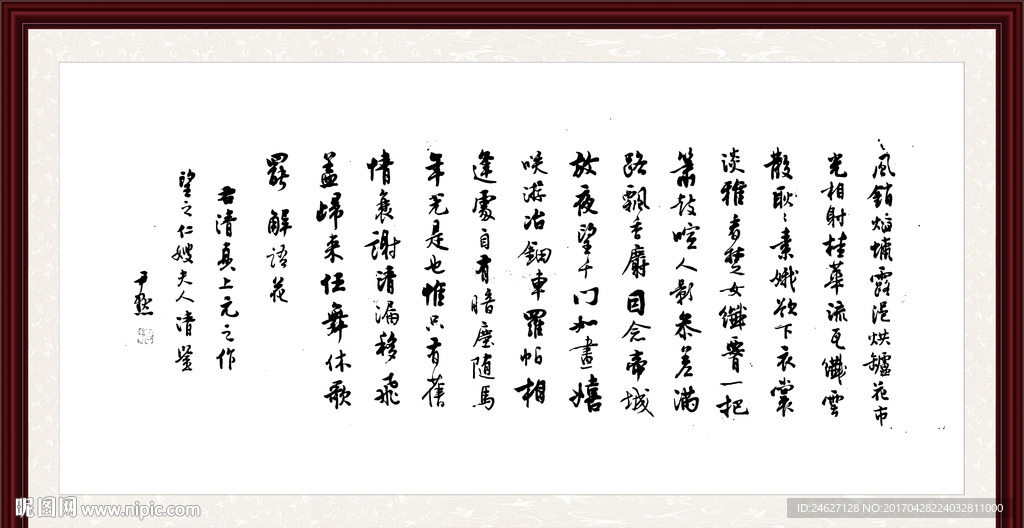 風銷焰蠟露浥烘罏花市
光相射桂華流瓦纖雲
散耿〻素娥欲下衣裳
淡雅看楚女纖腰一把
簫鼓喧人影參差滿
路飄香麝因念帝城
放夜望千門如晝嬉
咲游冶鈿車羅帕相
逢處自有暗塵隨馬
年光是也惟只有舊
情衰謝清漏移飛
蓋歸來任舞休歌
罷 解語花
右清真上元之作
望之仁嫂夫人清鑒
尹默
昵图网 www.nipic.com
ID:24627128 NO:20170428224032811000